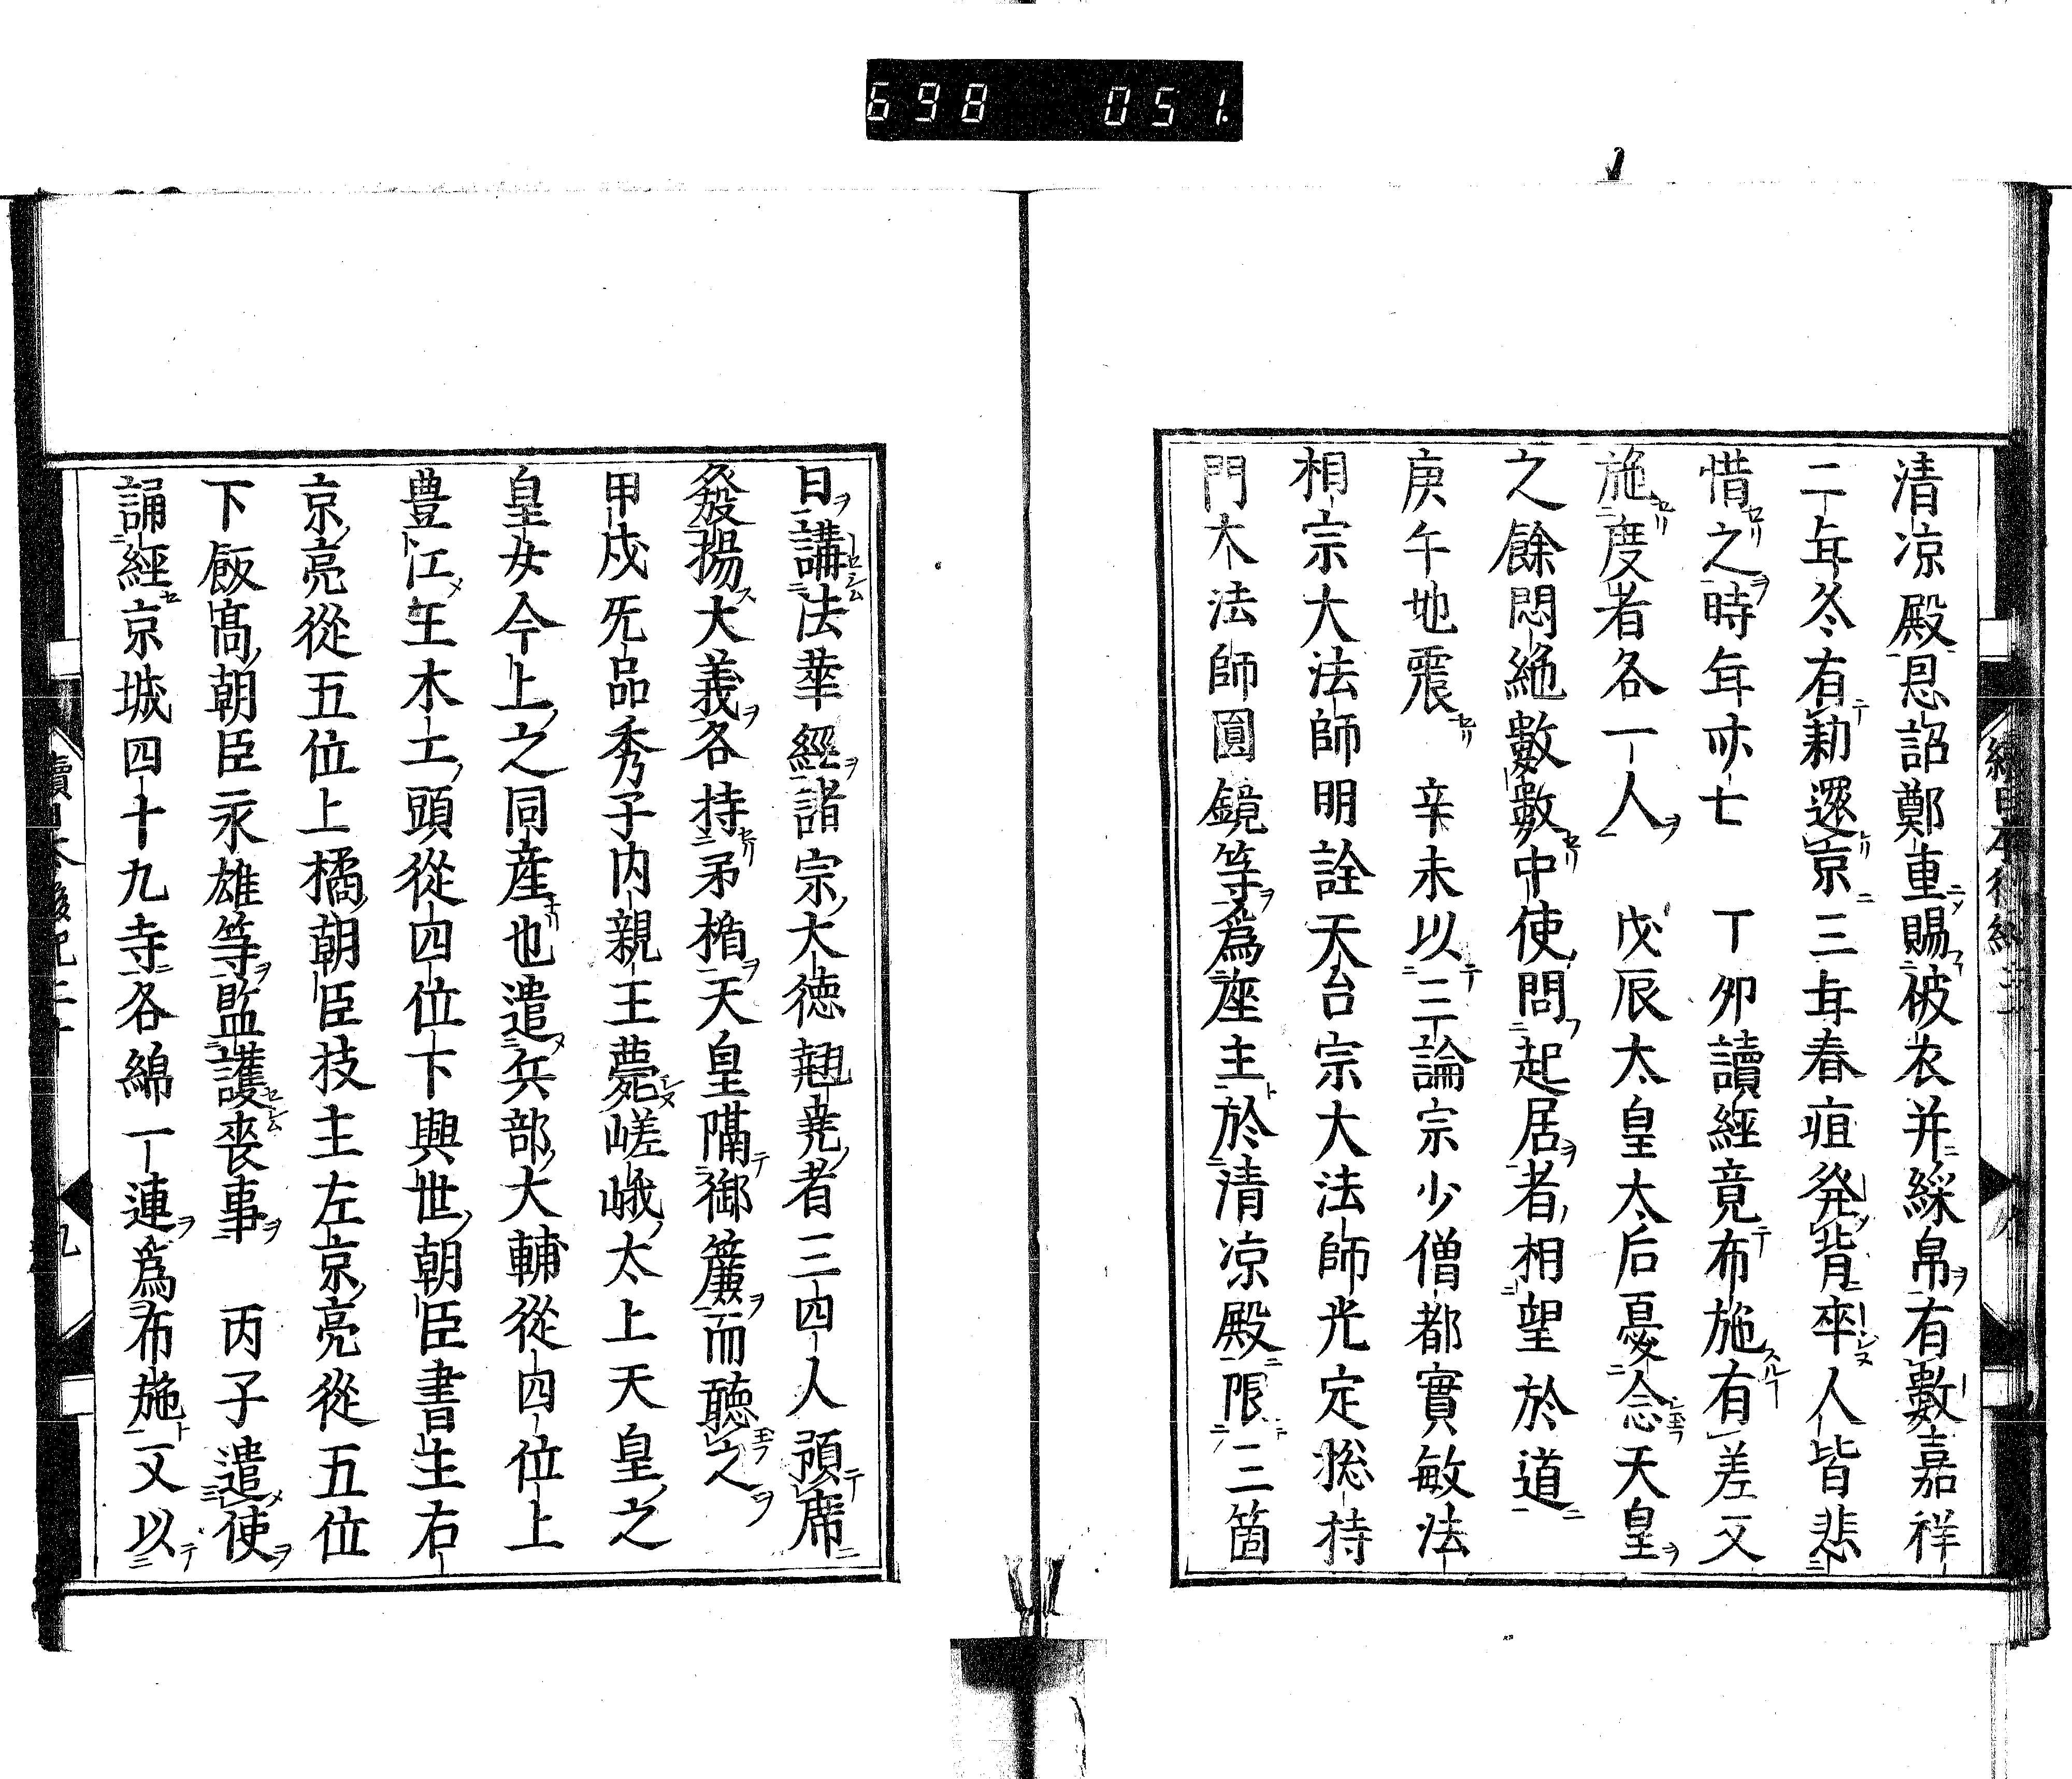 698 051
清凉殿恩詔鄭重賜被衣并綵帛有數嘉祥
二年冬有勅還京三年春疽発背卒人皆悲
惜之時年亦七 丁卯讀經竟布施有差又
施度者各一人 戊辰太皇太后憂念天皇
之餘悶絶數數中使問起居者相望於道
庚午地震 辛未以三論宗少僧都實敏法
相宗大法師明詮天台宗大法師光定惣持
門大法師圓鏡等爲座主於清凉殿限三箇
日講法華經諸宗大德翹堯者三四人預席
發揚大義各持矛楯天皇隔御簾而聽之
甲戌旡品秀子内親王薨嵯峨太上天皇之
皇女今上之同産也遣兵部大輔從四位上
豊江王木工頭從四位下興世朝臣書主右
京亮從五位上橘朝臣枝主左京亮從五位
下飯高朝臣永雄等監護喪事 丙子遣使
誦經京城四十九寺各綿一連爲布施又以